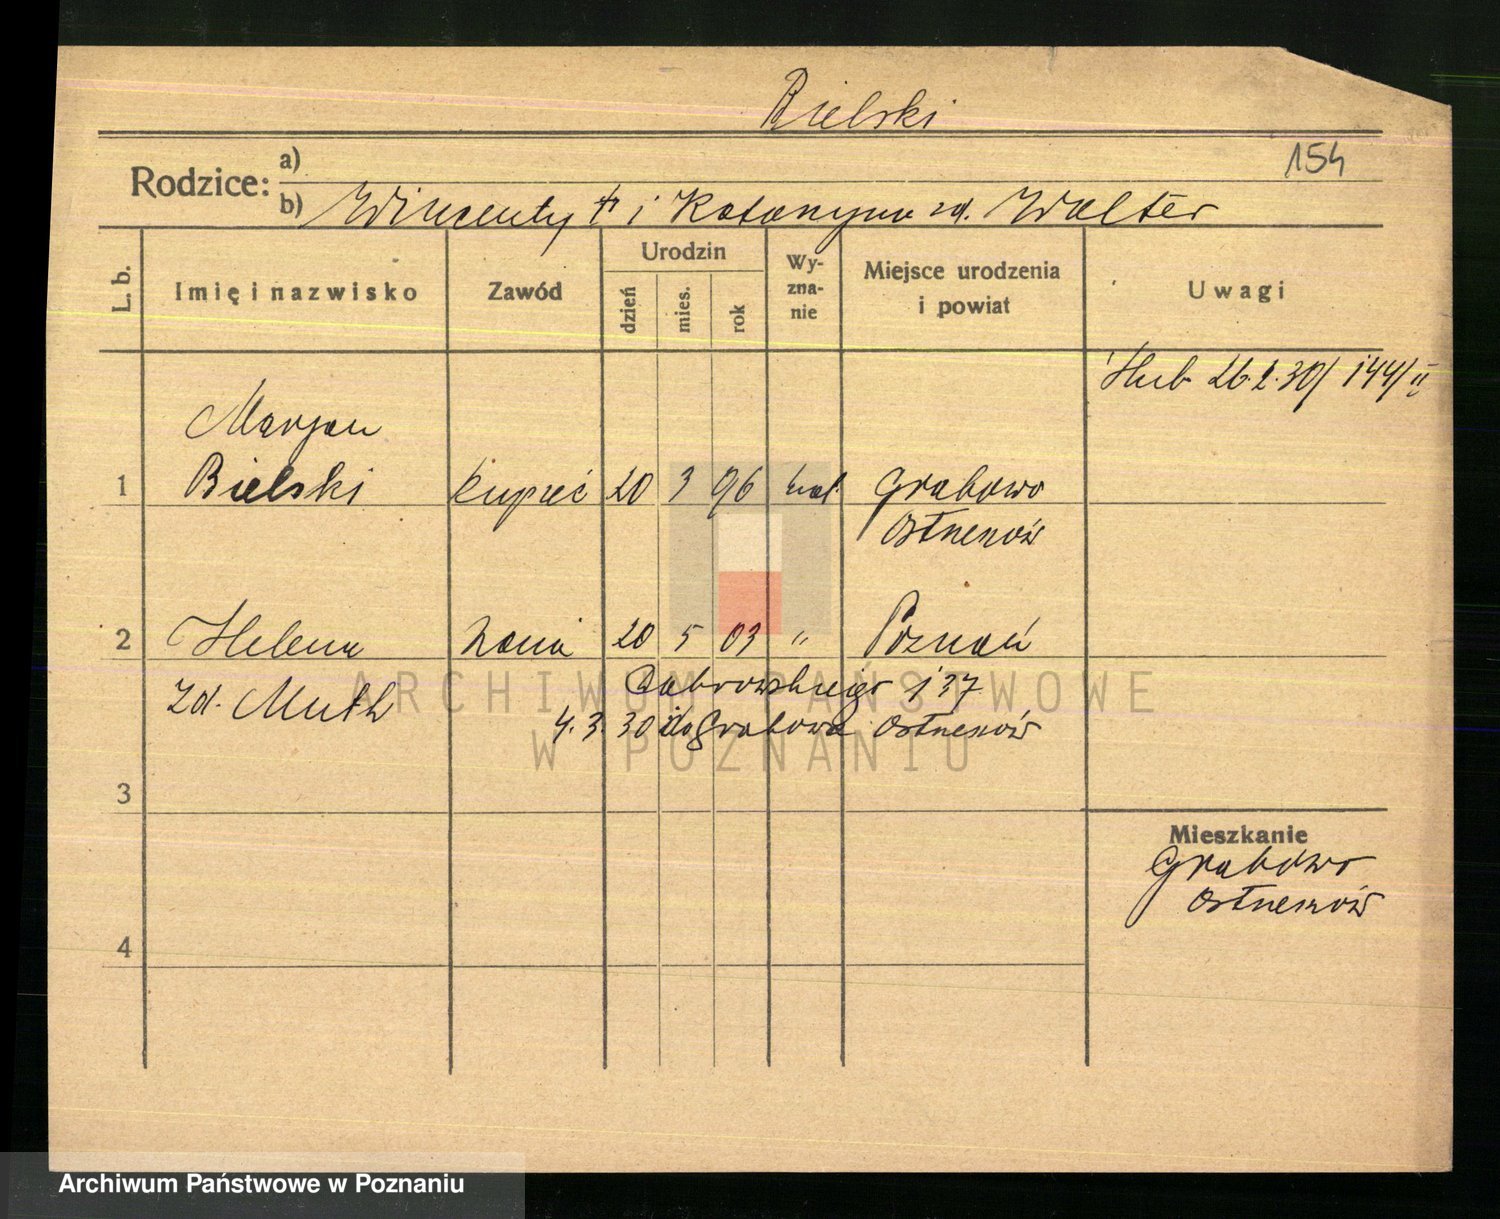 Bielski
154
Rodzice: a)
b) Wincenty † i Katarzyna zd. Walter
L. b. Imię i nazwisko Zawód Urodzin dzień mies. rok Wyznanie Miejsce urodzenia i powiat Uwagi
ślub 26.2.30/ 144/II
Marjan
1 Bielski kupiec 20 3 96 kat. Grabowo
Ostrzeszów
2 Helena żona 20 5 03 " Poznań
zd. Muth Dąbrowskiego 137
4.3.30 do Grabowa Ostrzeszów
3
Mieszkanie
Grabowo
Ostrzeszów
4
ARCHIWUM PAŃSTWOWE
W POZNANIU
Archiwum Państwowe w Poznaniu